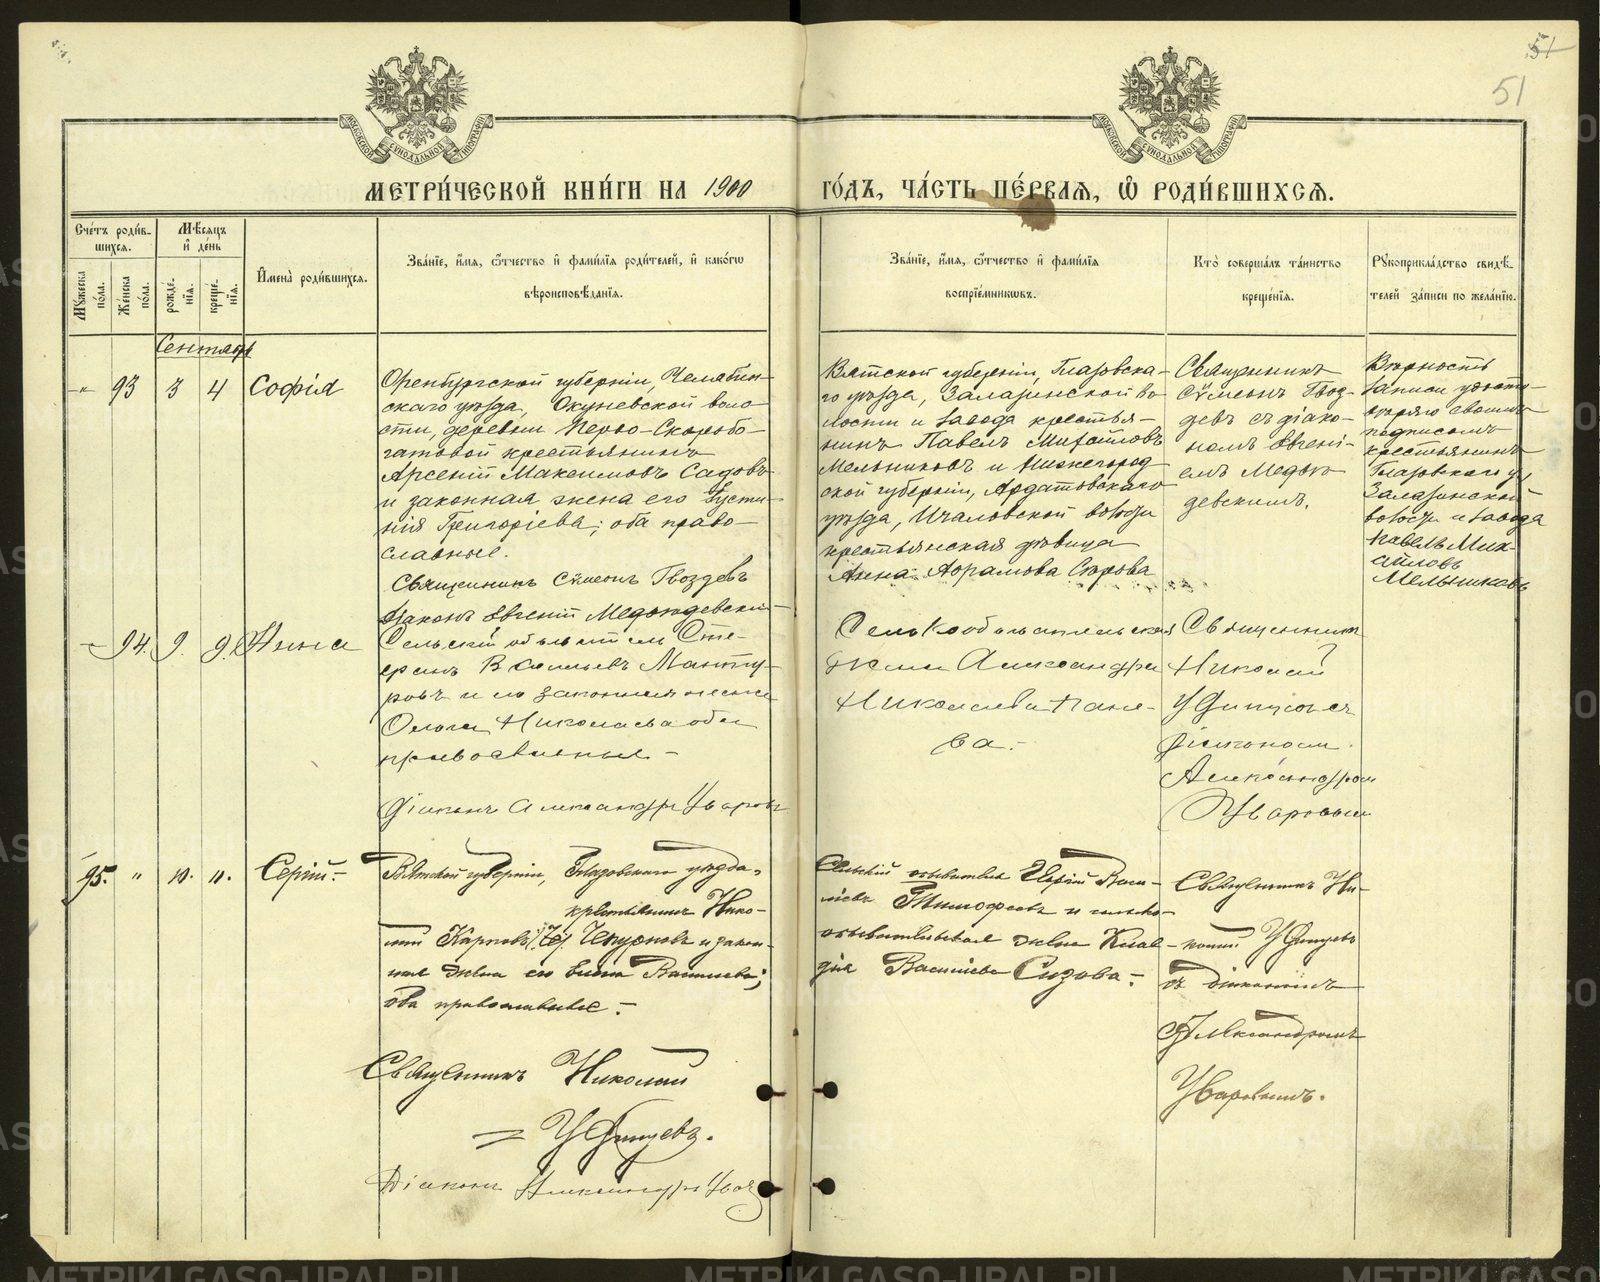 51
51
МЕТРИ́ЧЕСКОЙ КНИ́ГИ НА 1900 ГО́ДЪ, ЧА́СТЬ ПЕ́РВАЯ, Ѡ РОДИ́ВШИХСЯ.
Счетъ роди́вшихся.
Му́жеска по́ла.
Же́нска по́ла.
Мѣсяцъ и день
рожде́нїя.
креще́нїя.
Имена̀ роди́вшихся.
Зва́нїе, и́мя, о́тчество и фами́лїя роди́телей, и како́гѡ
вѣроисповѣ́данїя.
Зва́нїе, и́мя, о́тчество и фами́лїя
воспрїе́мникѡвъ.
Кто̀ соверша́лъ та́инство
креще́нїя.
Рꙋкоприкла́дство свидѣ́-
телей за́писи по жела́нїю.
Сентябрь
-"- 93 3 4 Софія
Оренбургской губерніи, Челябин-
скаго уѣзда, Окуневской воло-
сти, деревни Перво-Скоробо-
гатовой крестьянинъ
Арсеній Максимовъ Садовъ
и законная жена его Іусти-
нія Григоріева; оба право-
славные.
Священникъ Сѵмеонъ Гвоздевъ
Діаконъ Евгеній Медвѣдевскій
Вятской губерніи, Глазовска-
го уѣзда, Залазинской во-
лости и завода крестья-
нинъ Павелъ Михайловъ
Мельниковъ и Нижегород
ской губерніи, Ардатовскаго
уѣзда, Ичаловской волости
крестьянская дѣвица
Анна Абрамова
Священникъ
Сѵмеонъ Гвоз-
девъ съ діако-
номъ Евгені-
емъ Медвѣ-
девскимъ.
Вѣрность
записи удосто-
вѣряю своимъ
подписомъ
крестьянинъ
Глазовскаго у.,
Залазинской
волости и завода
Павелъ Мих-
айловъ
Мельниковъ
- 94. 9. 9. Нина
Сельскій обыватель Сте-
фанъ Васильевъ Манту-
ровъ и его законная жена
Ольга Николаева оба
православные. -
Діаконъ Александръ Уваровъ
Сельскообывательская
жена Александра
Николаева Пане-
ва. -
Священникъ
Николай
Удинцевъ съ
діакономъ
Александромъ
Уваровымъ
95. " 10. 11. Сергій. -
Вятской губерніи, Глазовскаго уѣзда,
крестьянинъ Нико-
лай Карповъ Чепурновъ и закон-
ная жена его Елена Васильева;
оба православные. -
Священникъ Николай
Удинцевъ.
Діаконъ Александръ Уваровъ
Сельскій обыватель Сергій Васи-
ліевъ Тимофеевъ и сельско-
обывательская жена Клав-
дія Василіева Сизова. -
Священникъ Ни-
колай Удинцевъ
съ діакономъ
Александромъ
Уваровымъ.
METRIKI.GASO-URAL.RU